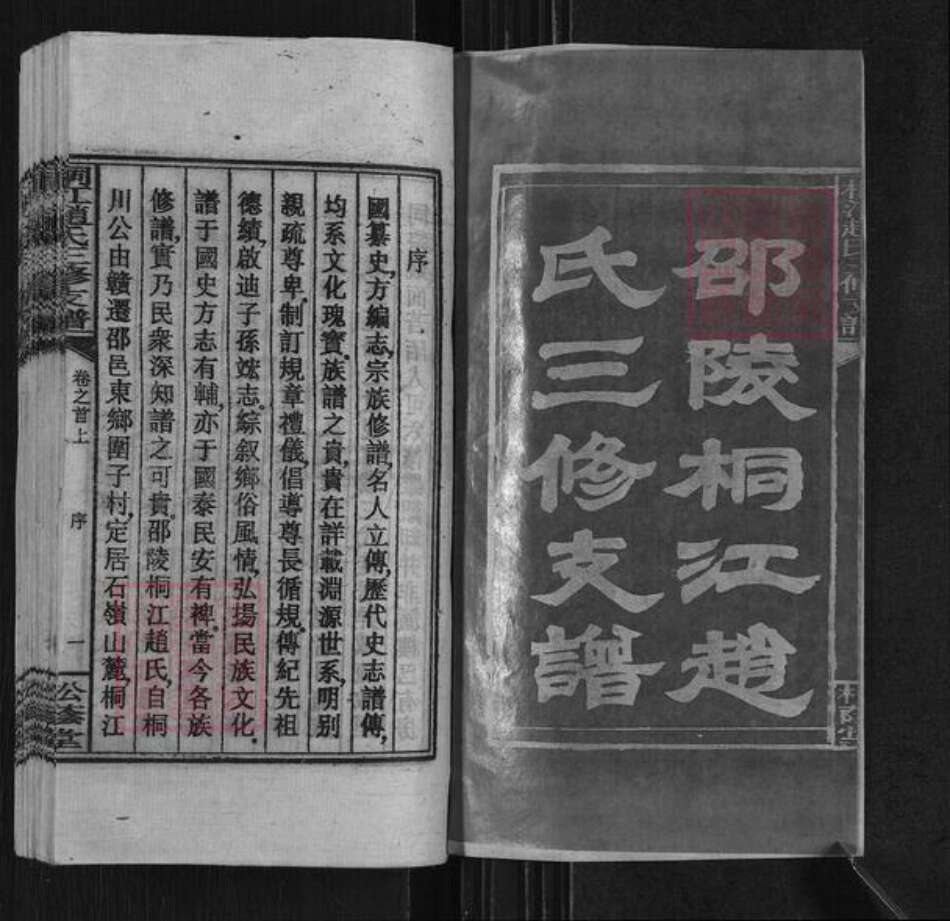 邵陵桐江趙
氏三修支譜
序
國纂史,方編志,宗族修譜,名人立傳,歷代史志譜傳,
均系文化瑰寶。族譜之貴,貴在詳載淵源世系,明别
親疏尊卑。制訂規章禮儀,倡導尊長循規。傳紀先祖
德績,啟迪子孫竤志。綜叙鄉俗風情,弘揚民族文化。
譜于國史方志有輔,亦于國泰民安有裨。當今各族
修譜,實乃民衆深知譜之可貴。邵陵桐江趙氏,自桐
川公由贛遷邵邑東鄉圍子村,定居石嶺山麓,桐江
桐江趙氏三修支譜
卷之首上
序
一